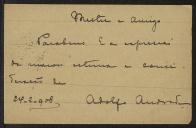 Mestre e amigo
Parabens E a expressão
da maior estima e consi-
deração de
24-2-908 Adolfo Andrade